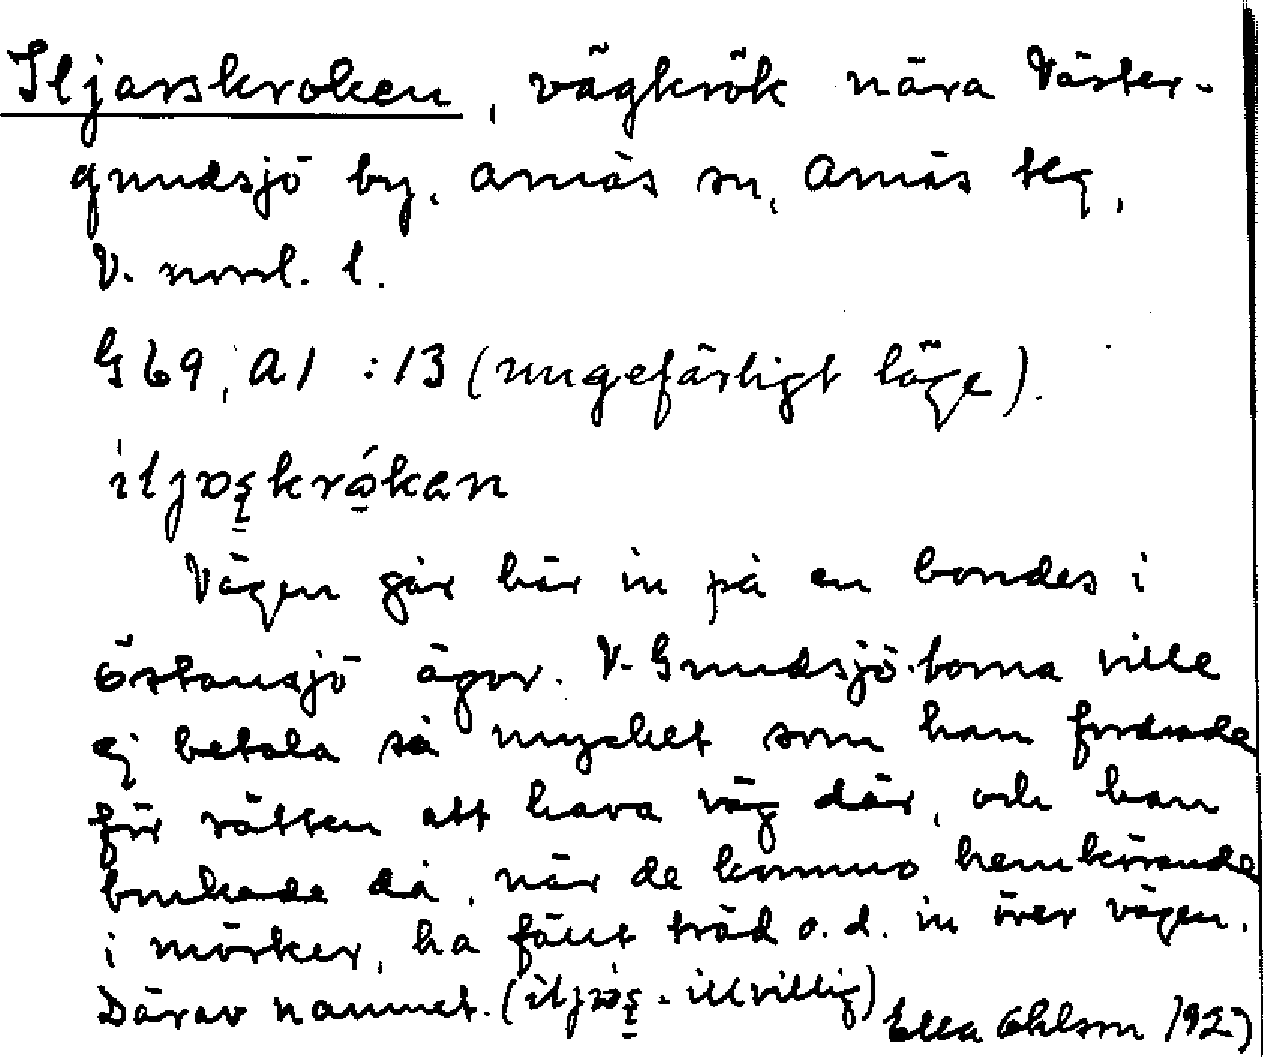 Iljarskroken, vägkrök nära Väster-
gnudsjö by, Arnäs sn, Arnäs tlg,
V. norrl. l.
G 69, A 1 : 13 (ungefärligt läge).
Vägen går här in på en bondes i
Östansjö ägor. V. Gnudsjö-borna ville
ej betala så mycket som han fordrade
för rätten att hava väg där, och han
brukade då, när de kommo hemkörande
i mörker, ha fällt träd o.d. in över vägen.
Därav namnet. ( - illvillig) Ella Ohlson 1927